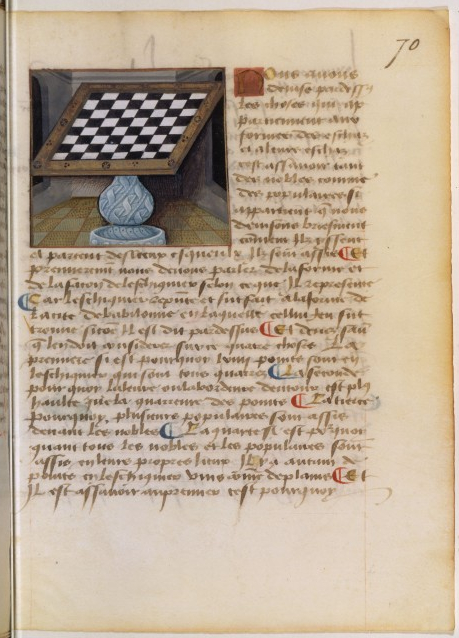 70
Nous avons
devise par dessus
les choses qui ap
partiennent aux
formes des eschaz
et aleurs eschaz
cest assavoir tant
des nobles comme
des populaires si
appartient que nous
devisons briefment
comment Ilz yssent
et partent des lieux esquelz Ilz sont assis Et
premierement nous devons parler de la forme et
de la facon de leschiquier selon ce que Il represente
Car leschiquier represente et fut fait a la forme de
la cite de babilonne en laquelle cellui jeu fut
trouve sicomme Il est dit par dessus Et devez savoir
que len doit considerer sur ce quatre choses La
premiere si est pourquoy lxiiii points sont en
leschiquier qui sont tous quarrez La seconde
pour quoy la bordeure dentour est plus
haulte que la quarreure des points La tierce
pourquoy plusieurs populaires sont assis
devant les nobles La quarte si est pourquoy
quant tous les nobles et les populaires sont
assis en leurs propres lieux Il y a autant de
points en leschiquier vuis comme de plains Et
Il est assavoir au premier cest pourquoy